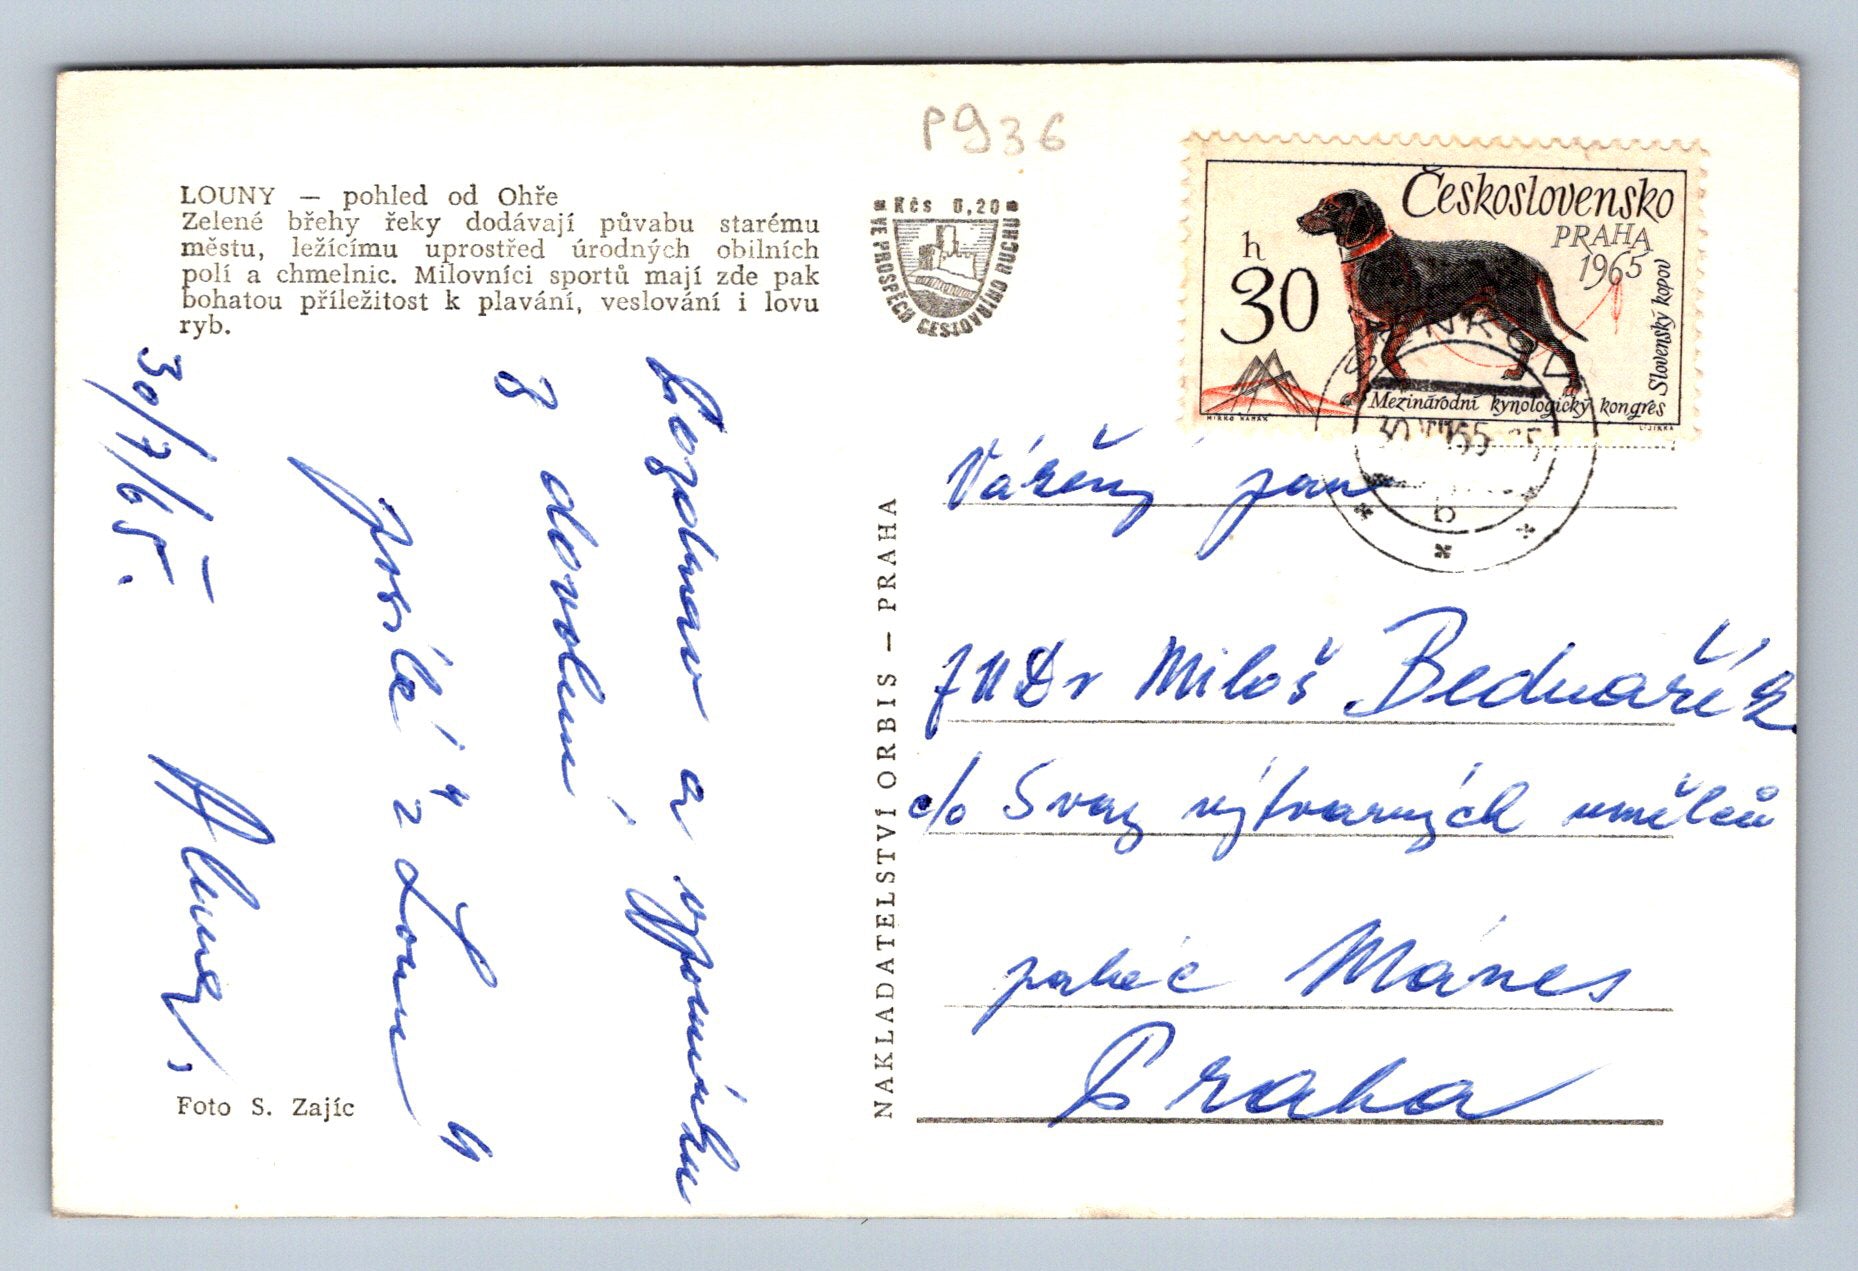 P936
LOUNY — pohled od Ohře
Zelené břehy řeky dodávají půvabu starému
městu, ležícímu uprostřed úrodných obilních
polí a chmelnic. Milovníci sportů mají zde pak
bohatou příležitost k plavání, veslování i lovu
ryb.
Kčs 0,20
VE PROSPĚCH CESTOVNÍHO RUCHU
Československo
PRAHA
1965
h
30
Slovenský kopov
Mezinárodní kynologický kongres
MIRKO HANÁK
L. JIRKA
Pozdrav a vzpomínku
z dovolené
posílá "z Loun"
30/7/65.
NAKLADATELSTVÍ ORBIS — PRAHA
Vážený pan
JUDr Miloš Bednařík
c/o Svaz výtvarných umělců
palác Mánes
Praha
Foto S. Zajíc